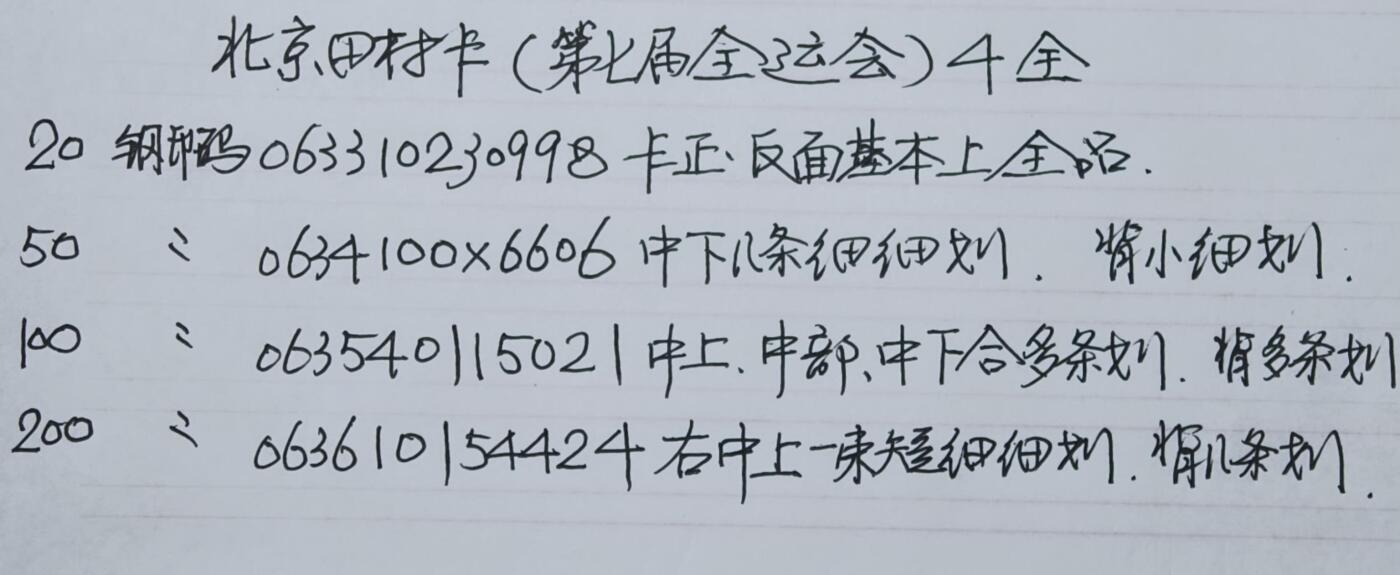 北京田村卡(第七届全运会)4全
20 钢印码063310230998卡正、反面基本上全品.
50 〃 0634100×6606中下几条细细划. 背小细划.
100 〃 063540115021中上、中部、中下合多条划. 背多条划
200 〃 063610154424右中上一束短细细划. 背几条划.